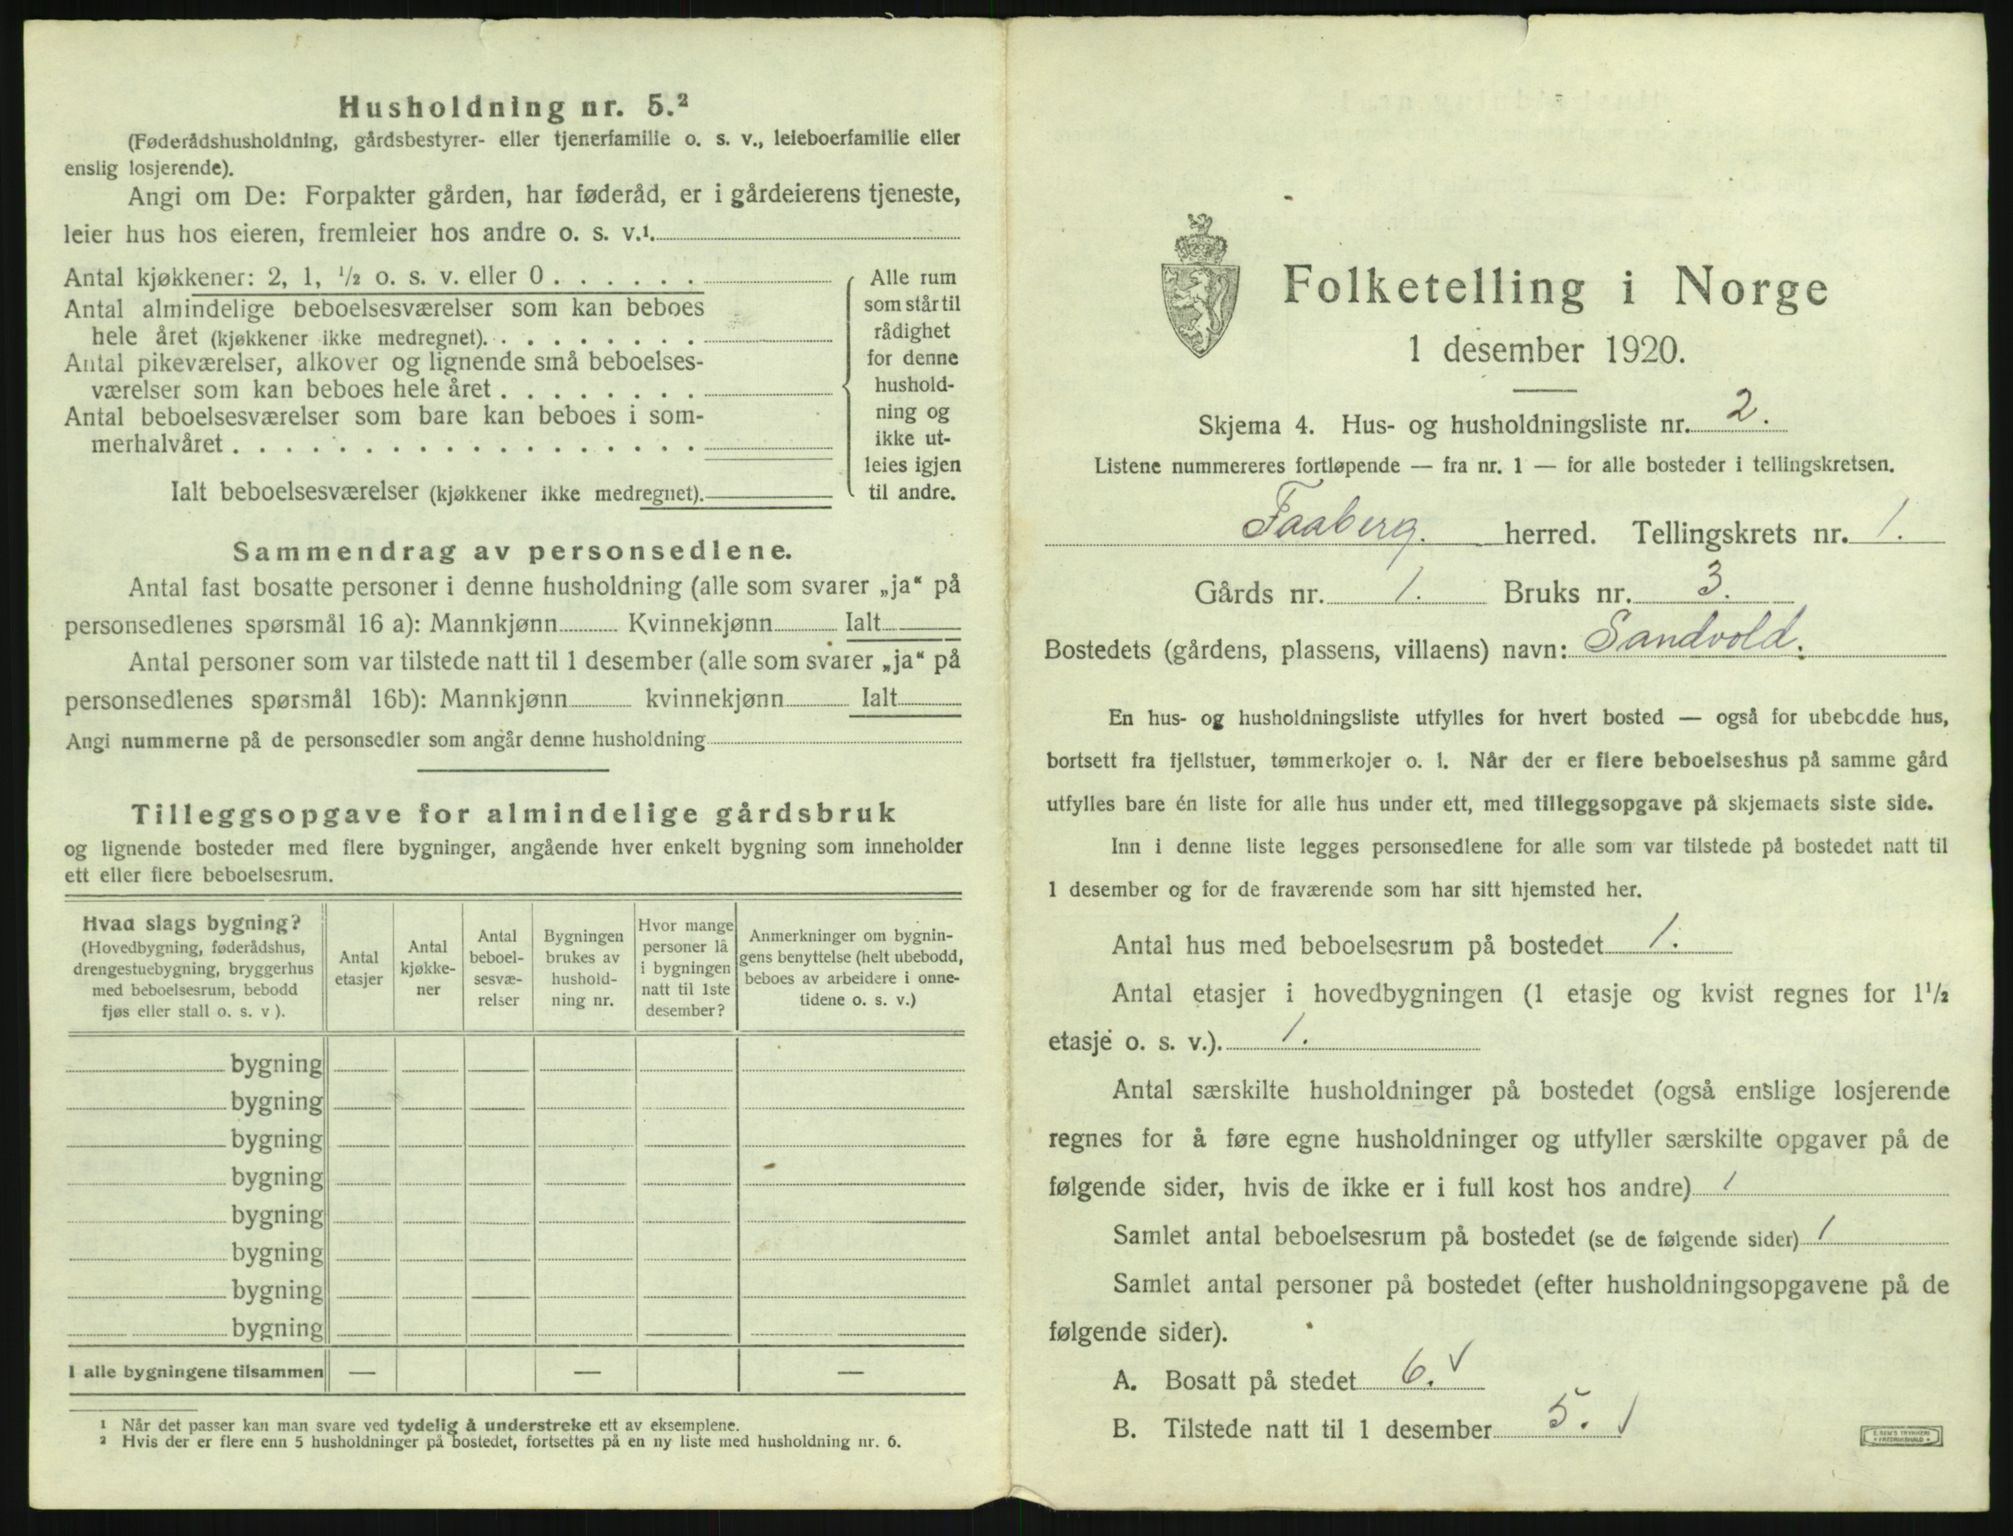 Husholdning nr. 5.²
(Føderådshusholdning, gårdsbestyrer- eller tjenerfamilie o. s. v., leieboerfamilie eller
enslig losjerende).
Angi om De: Forpakter gården, har føderåd, er i gårdeierens tjeneste,
leier hus hos eieren, fremleier hos andre o. s. v.¹.
Antal kjøkkener: 2, 1, ½ o. s. v. eller 0 . . . . . .
Antal almindelige beboelsesværelser som kan beboes
hele året (kjøkkener ikke medregnet). . . . . . . . .
Antal pikeværelser, alkover og lignende små beboelses-
værelser som kan beboes hele året . . . . . . . .
Antal beboelsesværelser som bare kan beboes i som-
merhalvåret . . . . . . . . . . . . . . . . . .
Ialt beboelsesværelser (kjøkkener ikke medregnet).
Alle rum
som står til
rådighet
for denne
hushold-
ning og
ikke ut-
leies igjen
til andre.
Sammendrag av personsedlene.
Antal fast bosatte personer i denne husholdning (alle som svarer „ja“ på
personsedlenes spørsmål 16 a): Mannkjønn Kvinnekjønn Ialt
Antal personer som var tilstede natt til 1 desember (alle som svarer „ja“ på
personsedlenes spørsmål 16b): Mannkjønn kvinnekjønn Ialt
Angi nummerne på de personsedler som angår denne husholdning
Tilleggsopgave for almindelige gårdsbruk
og lignende bosteder med flere bygninger, angående hver enkelt bygning som inneholder
ett eller flere beboelsesrum.
Hvad slags bygning?
(Hovedbygning, føderådshus,
drengestuebygning, bryggerhus
med beboelsesrum, bebodd
fjøs eller stall o. s. v ).
Antal
etasjer
Antal
kjøkke-
ner
Antal
beboel-
sesvæ-
relser
Bygningen
brukes av
hushold-
ning nr.
Hvor mange
personer lå
i bygningen
natt til 1ste
desember?
Anmerkninger om bygnin-
gens benyttelse (helt ubebodd,
beboes av arbeidere i onne-
tidene o. s. v.)
bygning
bygning
bygning
bygning
bygning
bygning
bygning
bygning
I alle bygningene tilsammen — — —
¹ Når det passer kan man svare ved tydelig å understreke ett av eksemplene.
² Hvis der er flere enn 5 husholdninger på bostedet, fortsettes på en ny liste med husholdning nr. 6.
Folketelling i Norge
1 desember 1920.
Skjema 4. Hus- og husholdningsliste nr. 2.
Listene nummereres fortløpende — fra nr. 1 — for alle bosteder i tellingskretsen.
Faaberg. herred. Tellingskrets nr. 1.
Gårds nr. 1. Bruks nr. 3.
Bostedets (gårdens, plassens, villaens) navn: Sandvold.
En hus- og husholdningsliste utfylles for hvert bosted — også for ubebodde hus,
bortsett fra fjellstuer, tømmerkojer o. l. Når der er flere beboelseshus på samme gård
utfylles bare én liste for alle hus under ett, med tilleggsopgave på skjemaets siste side.
Inn i denne liste legges personsedlene for alle som var tilstede på bostedet natt til
1 desember og for de fraværende som har sitt hjemsted her.
Antal hus med beboelsesrum på bostedet 1.
Antal etasjer i hovedbygningen (1 etasje og kvist regnes for 1½
etasje o. s. v.). 1.
Antal særskilte husholdninger på bostedet (også enslige losjerende
regnes for å føre egne husholdninger og utfyller særskilte opgaver på de
følgende sider, hvis de ikke er i full kost hos andre) 1
Samlet antal beboelsesrum på bostedet (se de følgende sider) 1
Samlet antal personer på bostedet (efter husholdningsopgavene på de
følgende sider).
A. Bosatt på stedet 6. √
B. Tilstede natt til 1 desember 5. √
E. SEM'S TRYKKERI
FREDRIKSHALD